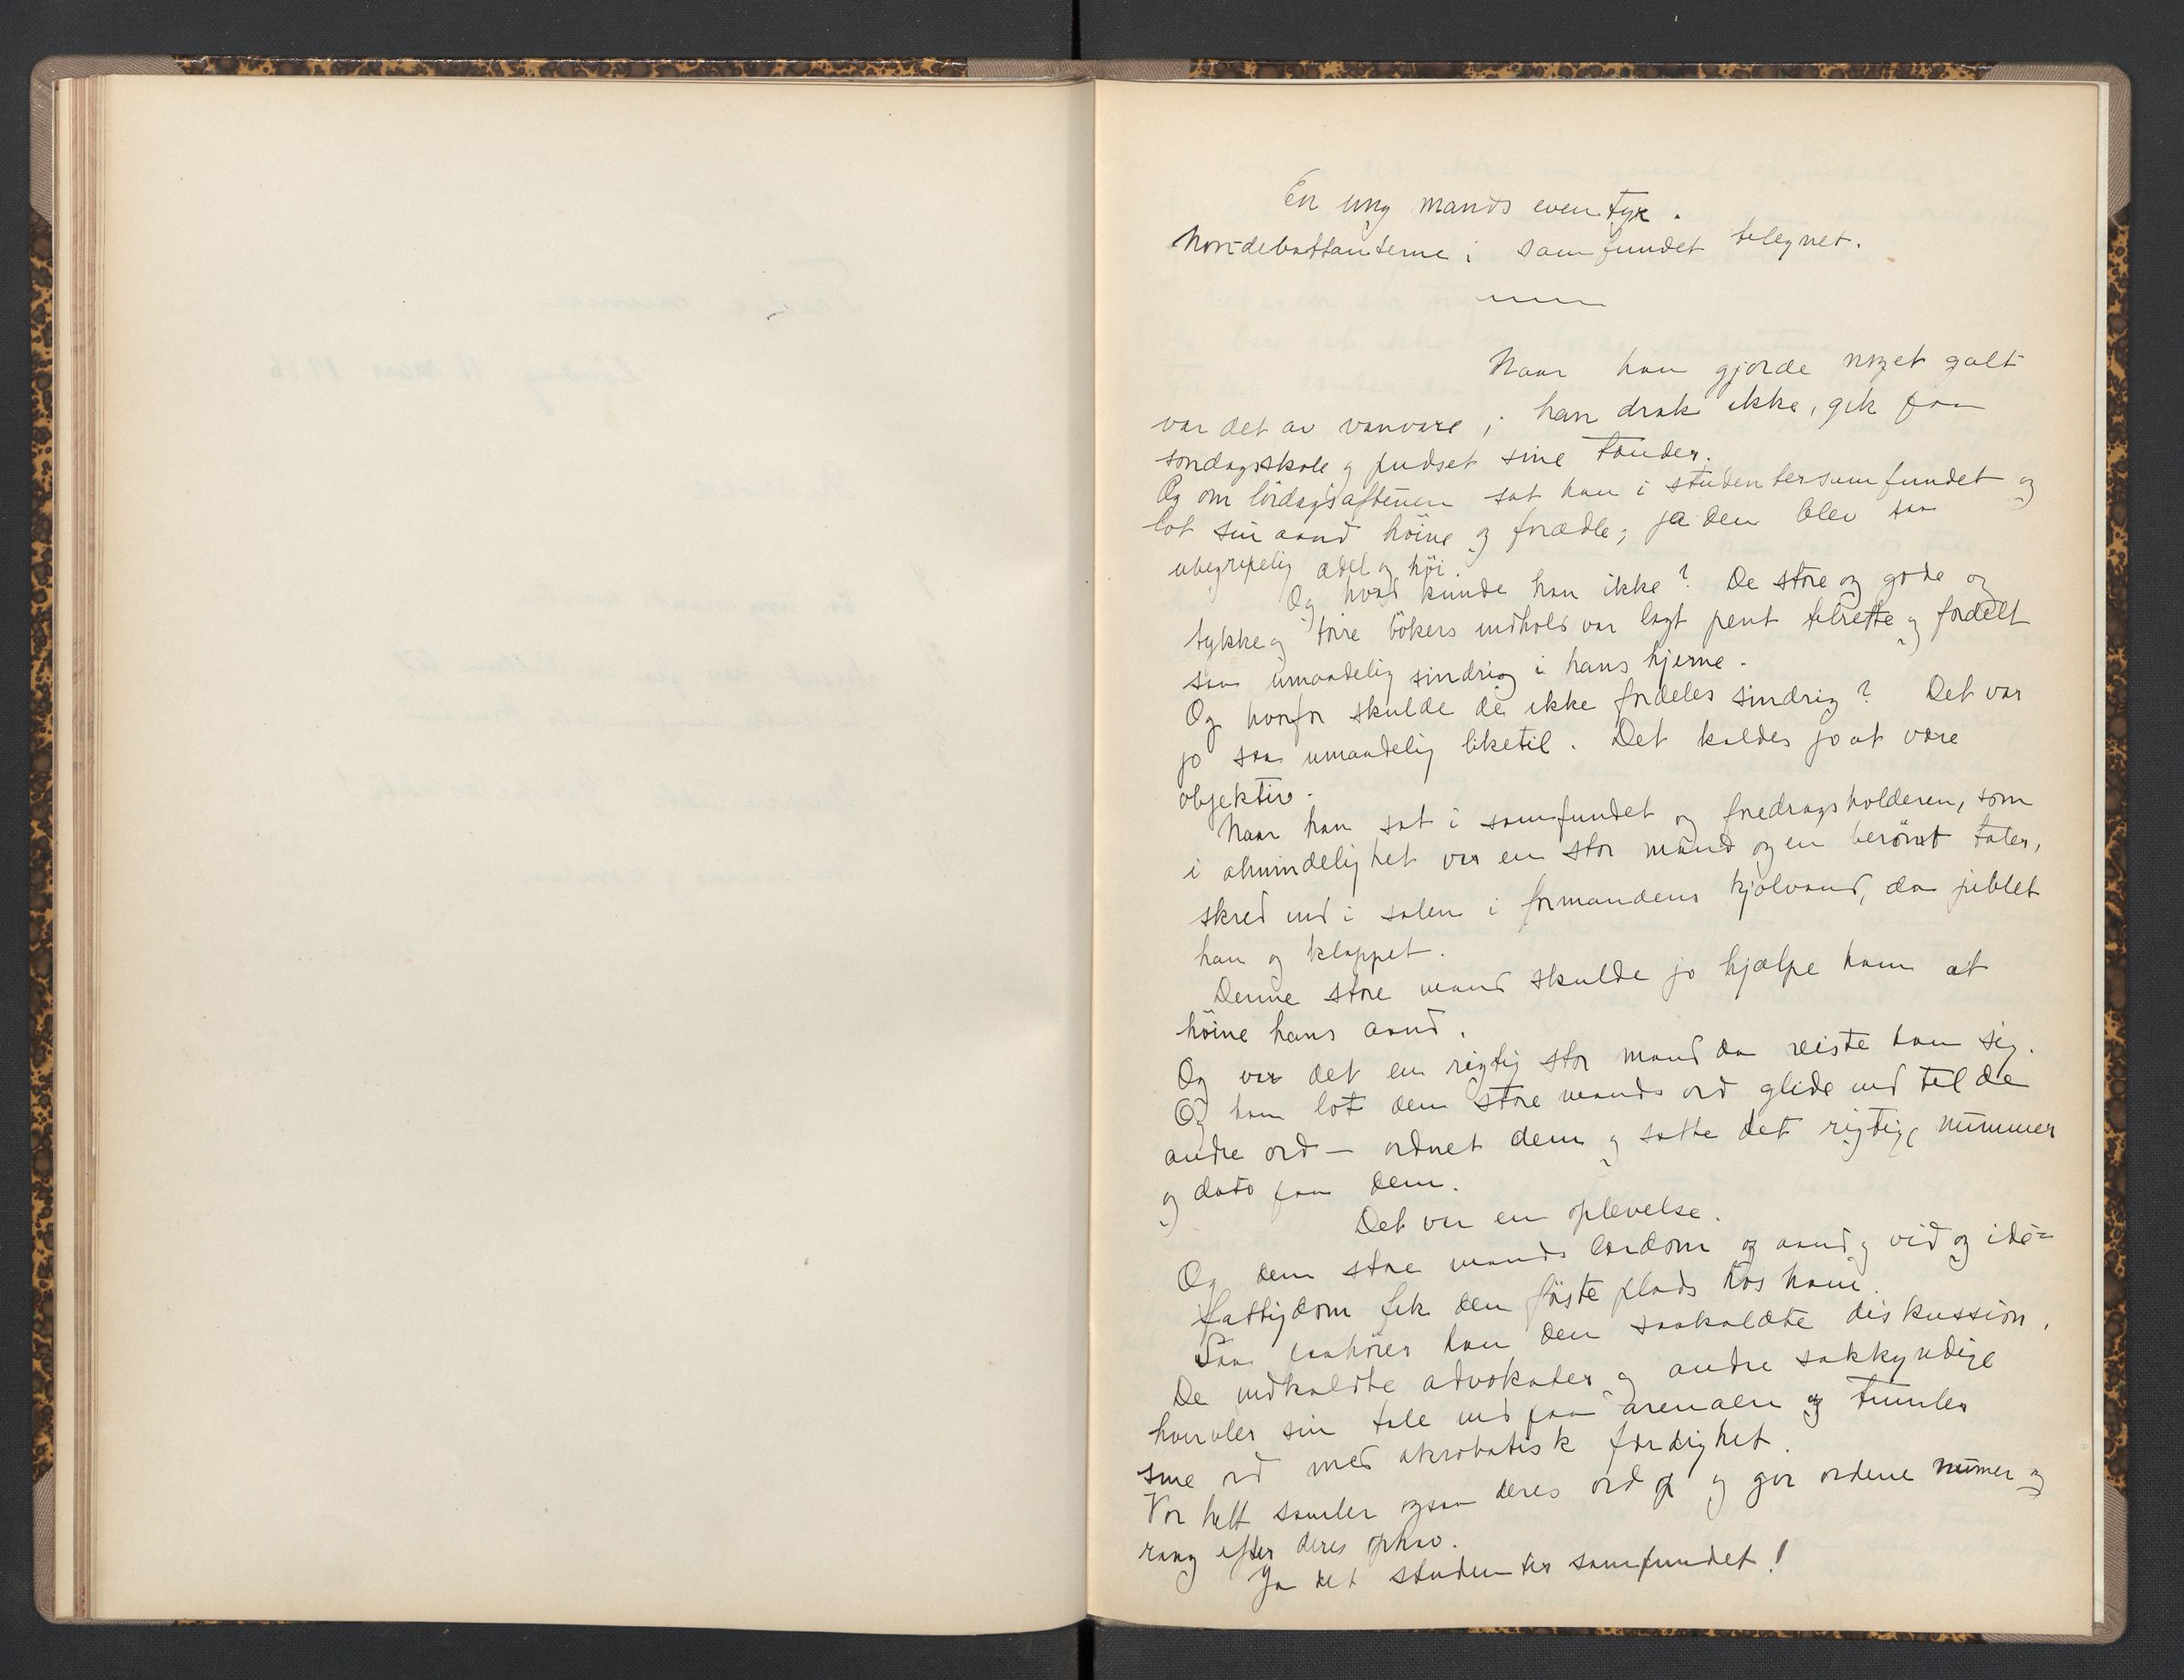 En ung mands eventyr.
Non-debattanterne i samfundet tilegnet.
Naar han gjorde noget galt
var det av vanvare; han drak ikke, gik paa
søndagsskole og pudset sine tænder.
Og om lördagsaftenen sat han i studentersamfundet og
lot sin aand höine og forædle; ja den blev saa
ubegripelig ædel og höi.
Og hvad kunde han ikke? De store og gode og
tykke og törre bökers indhold var lagt pent tilrette og fordelt
saa umaadelig sindrig i hans hjerne.
Og hvorfor skulde de ikke fordeles sindrig? Det var
jo saa umaadelig liketil. Det kaldes jo at være
objektiv.
Naar han sat i samfundet og foredragsholderen, som
i almindelighet var en stor mand og en berömt taler,
skred ind i salen i formandens kjølvand, da jublet
han og klappet.
Denne store mand skulde jo hjælpe ham at
höine hans aand.
Og var det en rigtig stor mand da reiste han sig.
Og han lot den store mands ord glide ind til de
andre ord — ordnet dem og satte det rigtige nummer
og dato paa dem.
Det var en oplevelse.
Og den store mands lærdom og aand og vid og idé-
fattigdom fik den første plads hos ham.
Saa paahörer han den saakaldte diskussion.
De indkaldte advokater og andre sakkyndige
hvirvler sin tale ind paa arenaen og tumler
sine ord med akrobatisk færdighet.
Vor helt samler ogsaa deres ord og gir ordene numer og
rang efter deres ophav.
Ja det studentersamfundet!